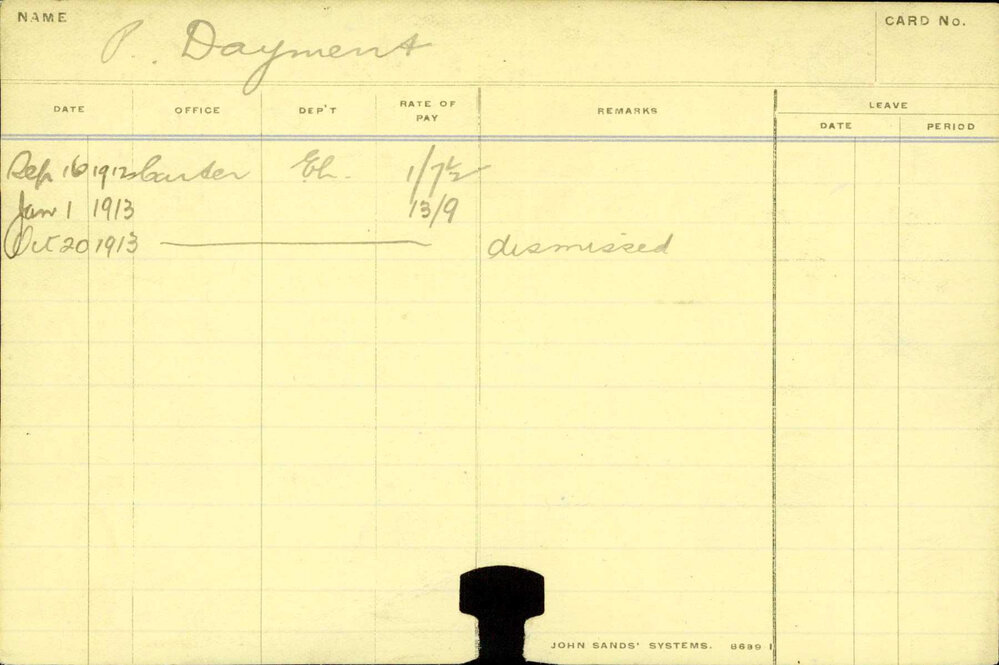 NAME P. Dayment CARD No.
DATE OFFICE DEP'T RATE OF PAY REMARKS LEAVE
DATE PERIOD
Sep 16 1912 Carter Eh. 1/7½
Jan 1 1913 13/9
Oct 20 1913 dismissed
JOHN SANDS' SYSTEMS. 8689